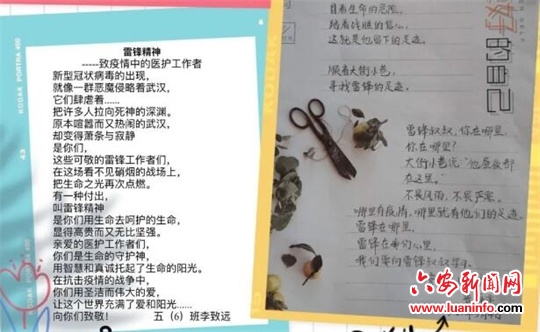 KODAK PORTRA 400
雷锋精神
-----致疫情中的医护工作者
新型冠状病毒的出现，
就像一群恶魔侵略着武汉，
它们肆虐着......
把许多人拉向死神的深渊。
原本喧嚣而又热闹的武汉，
却变得萧条与寂静
是你们，
这些可敬的雷锋工作者们，
在这场看不见硝烟的战场上，
把生命之光再次点燃。
有一种付出，
叫雷锋精神
是你们用生命去呵护的生命，
显得高贵而又无比坚强。
亲爱的医护工作者们，
你们是生命的守护神，
用智慧和真诚托起了生命的阳光。
在抗击疫情的战争中，
你们用圣洁而伟大的爱，
让这个世界充满了爱和阳光......
向你们致敬！ 五（6）班李致远
冒着生命的危险，
踏着战胜的信心，
这就是他留下的足迹。
顺着大街小巷，
寻找雷锋的足迹。
雷锋叔叔，你在哪里，
你在哪里？
在这里。
不畏风雨，不畏严寒。
哪里有疫情，哪里就有他们的足迹
雷锋在哪里，
雷锋在我们心里，
我们要向雷锋叔叔学习
的自己
KODAK
43
六安新闻网
www.luaninfo.com